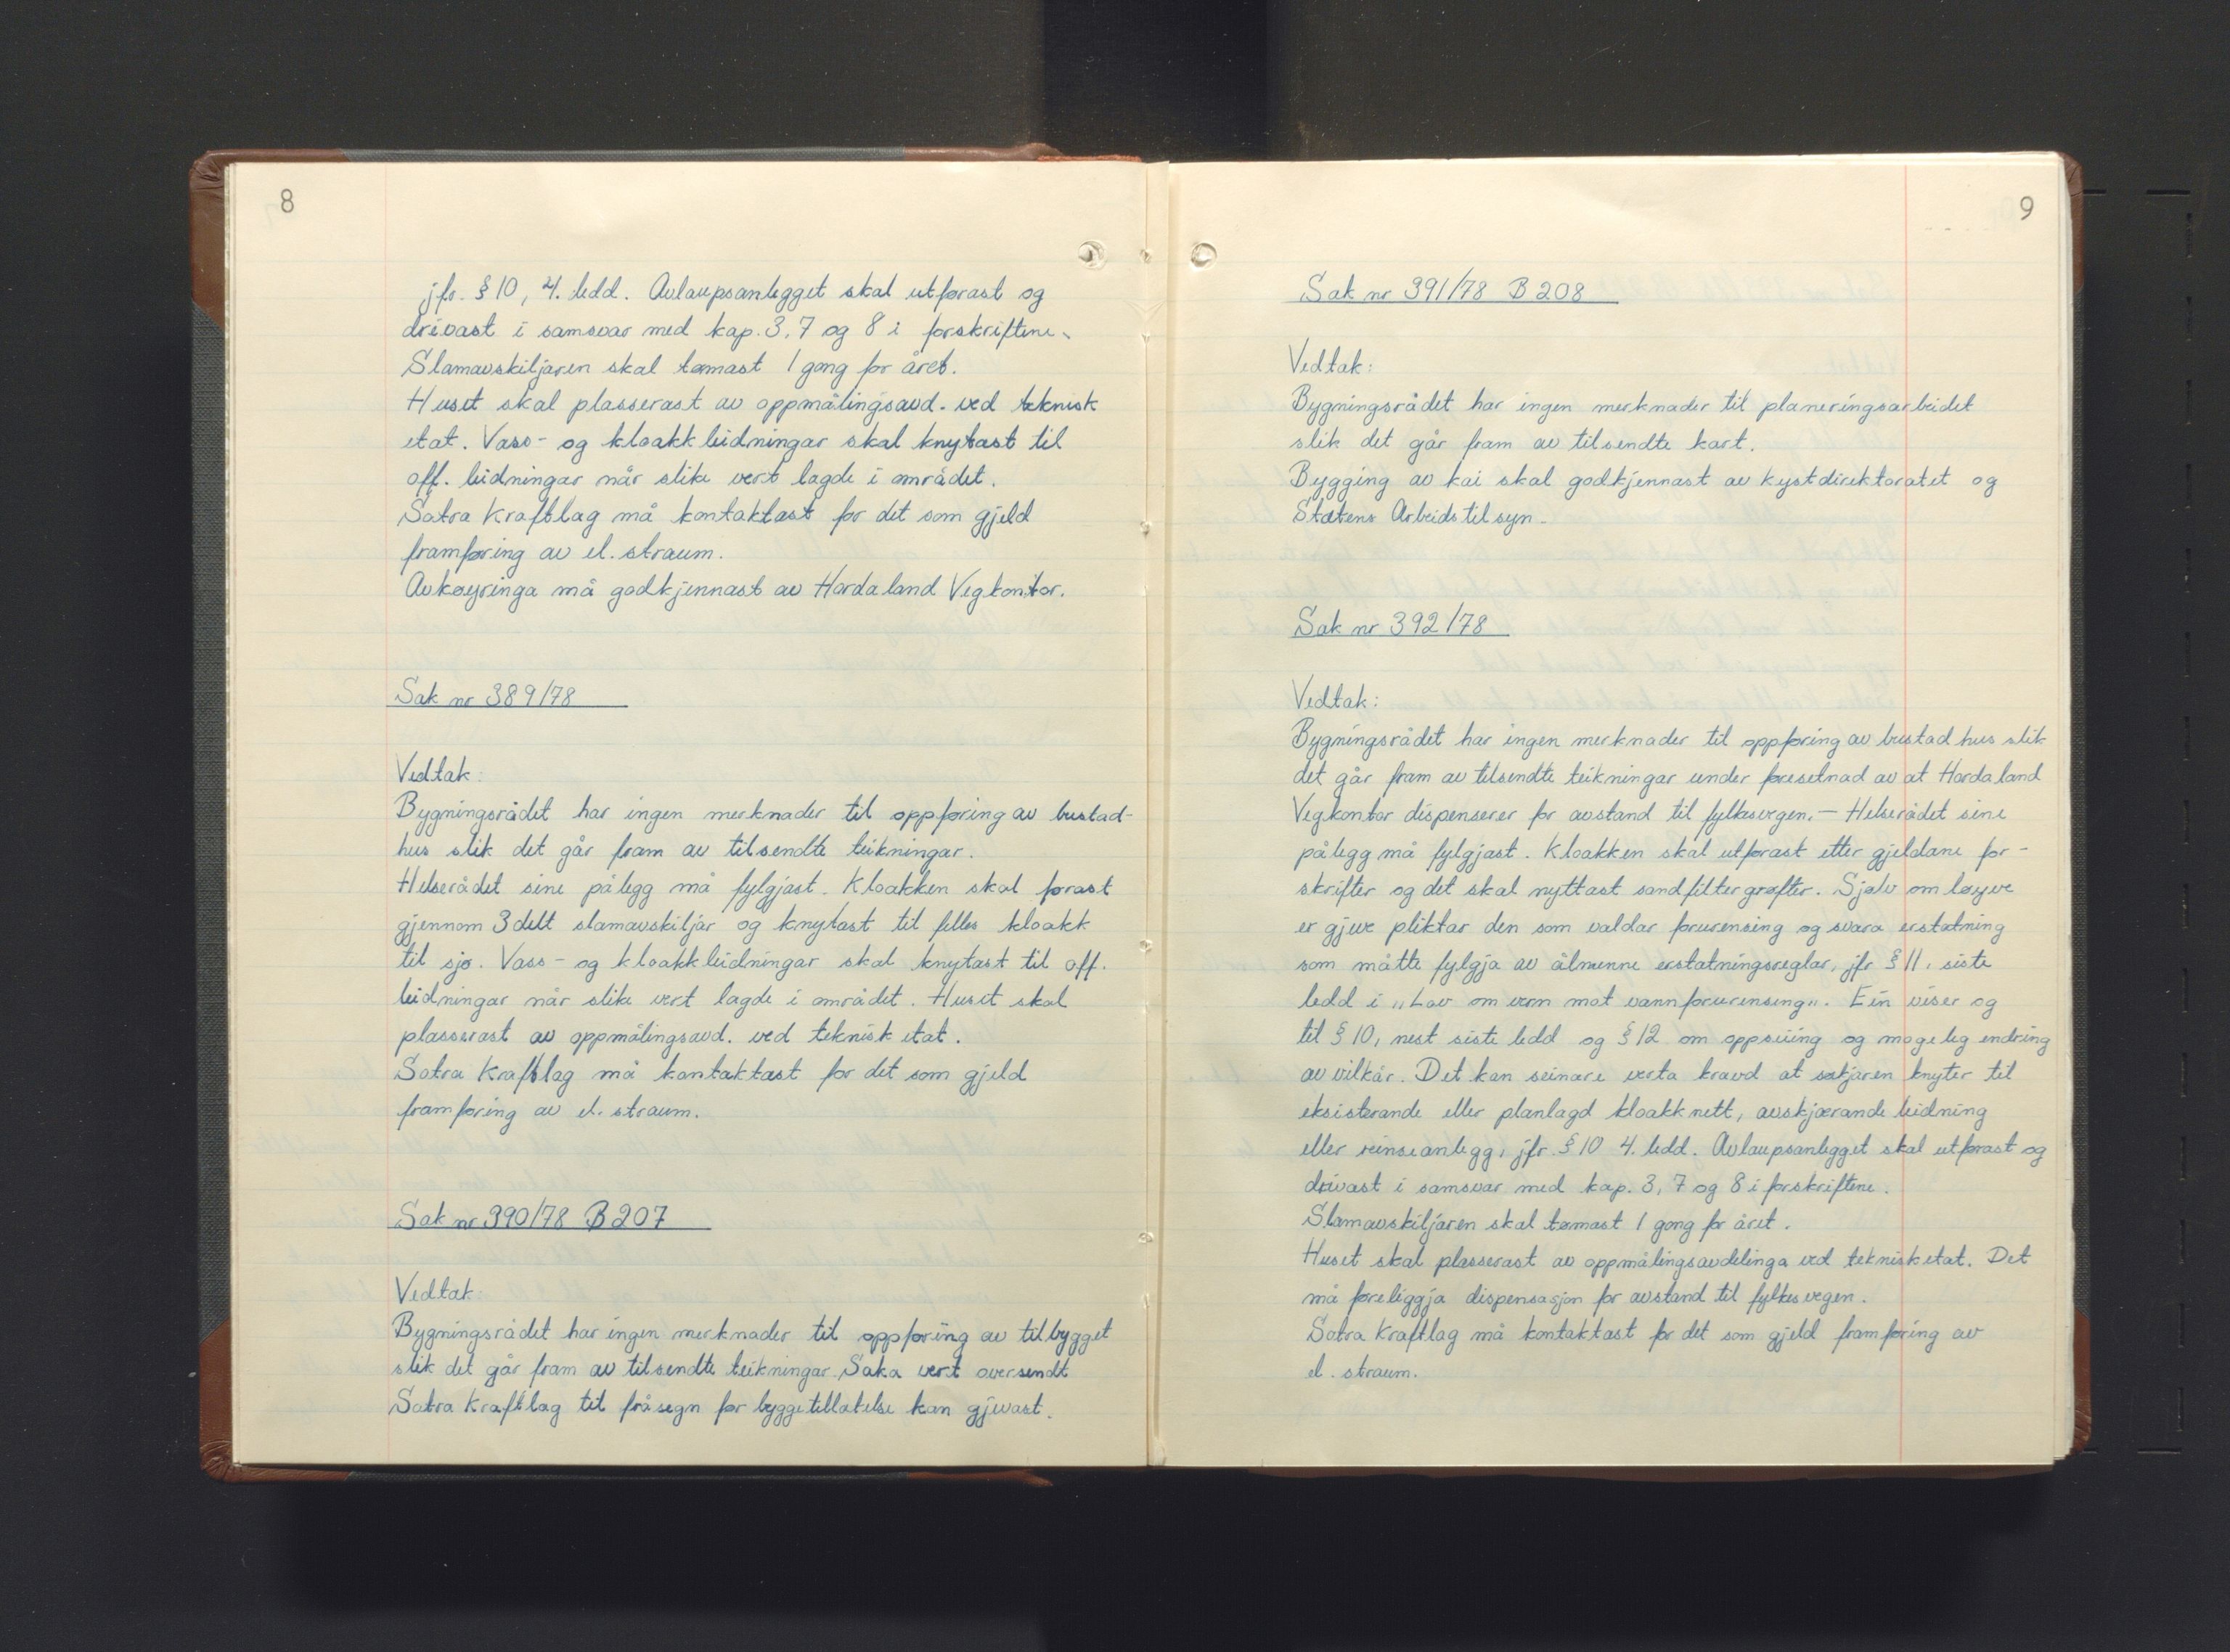 8
jfr. § 10, 4. ledd. Avlaupsanlegget skal utførast og
drivast i samsvar med kap. 3, 7 og 8 i forskriftene.
Slamavskiljaren skal tømast 1 gong for året.
Huset skal plasserast av oppmålingsavd. ved teknisk
etat. Vass- og kloakkleidningar skal knytast til
off. leidningar når slike vert lagde i området.
Sotra Kraftlag må kontaktast for det som gjeld
framføring av el. straum.
Avkøyringa må godkjennast av Hordaland Vegkontor.
Sak nr 389/78
Vedtak:
Bygningsrådet har ingen merknader til oppføring av bustad-
hus slik det går fram av tilsendte teikningar.
Helserådet sine pålegg må fylgjast. Kloakken skal førast
gjennom 3 delt slamavskiljar og knytast til felles kloakk
til sjø. Vass- og kloakkleidningar skal knytast til off.
leidningar når slike vert lagde i området. Huset skal
plasserast av oppmålingsavd. ved teknisk etat.
Sotra Kraftlag må kontaktast for det som gjeld
framføring av el. straum.
Sak nr 390/78 B 207
Vedtak:
Bygningsrådet har ingen merknader til oppføring av tilbygget
slik det går fram av tilsendte teikningar. Saka vert oversendt
Sotra Kraftlag til fråsegn før byggetillatelse kan gjevast.
9
Sak nr 391/78 B 208
Vedtak:
Bygningsrådet har ingen merknader til planeringsarbeidet
slik det går fram av tilsendte kart.
Bygging av kai skal godkjennast av kystdirektoratet og
Statens Arbeidstilsyn.
Sak nr 392/78
Vedtak:
Bygningsrådet har ingen merknader til oppføring av bustadhus slik
det går fram av tilsendte teikningar under føresetnad av at Hordaland
Vegkontor dispenserer for avstand til fylkesvegen. – Helserådet sine
pålegg må fylgjast. Kloakken skal utførast etter gjeldane for-
skrifter og det skal nyttast sandfiltergrøfter. Sjølv om løyve
er gjeve pliktar den som valdar forureining og svara erstatning
som måtte fylgja av ålmenne erstatningsreglar, jfr § 11, siste
ledd i "Lov om vern mot vannforurensing". Ein viser og
til § 10, nest siste ledd og § 12 om oppseiing og mogeleg endring
av vilkår. Det kan seinare verta kravd at søkjaren knyter til
eksisterande eller planlagd kloakknett, avskjærande leidning
eller reinseanlegg, jfr. § 10 4. ledd. Avlaupsanlegget skal utførast og
drivast i samsvar med kap. 3, 7 og 8 i forskriftene.
Slamavskiljaren skal tømast 1 gong for året.
Huset skal plasserast av oppmålingsavdelinga ved teknisk etat. Det
må føreliggja dispensasjon for avstand til fylkesvegen.
Sotra Kraftlag må kontaktast for det som gjeld framføring av
el. straum.